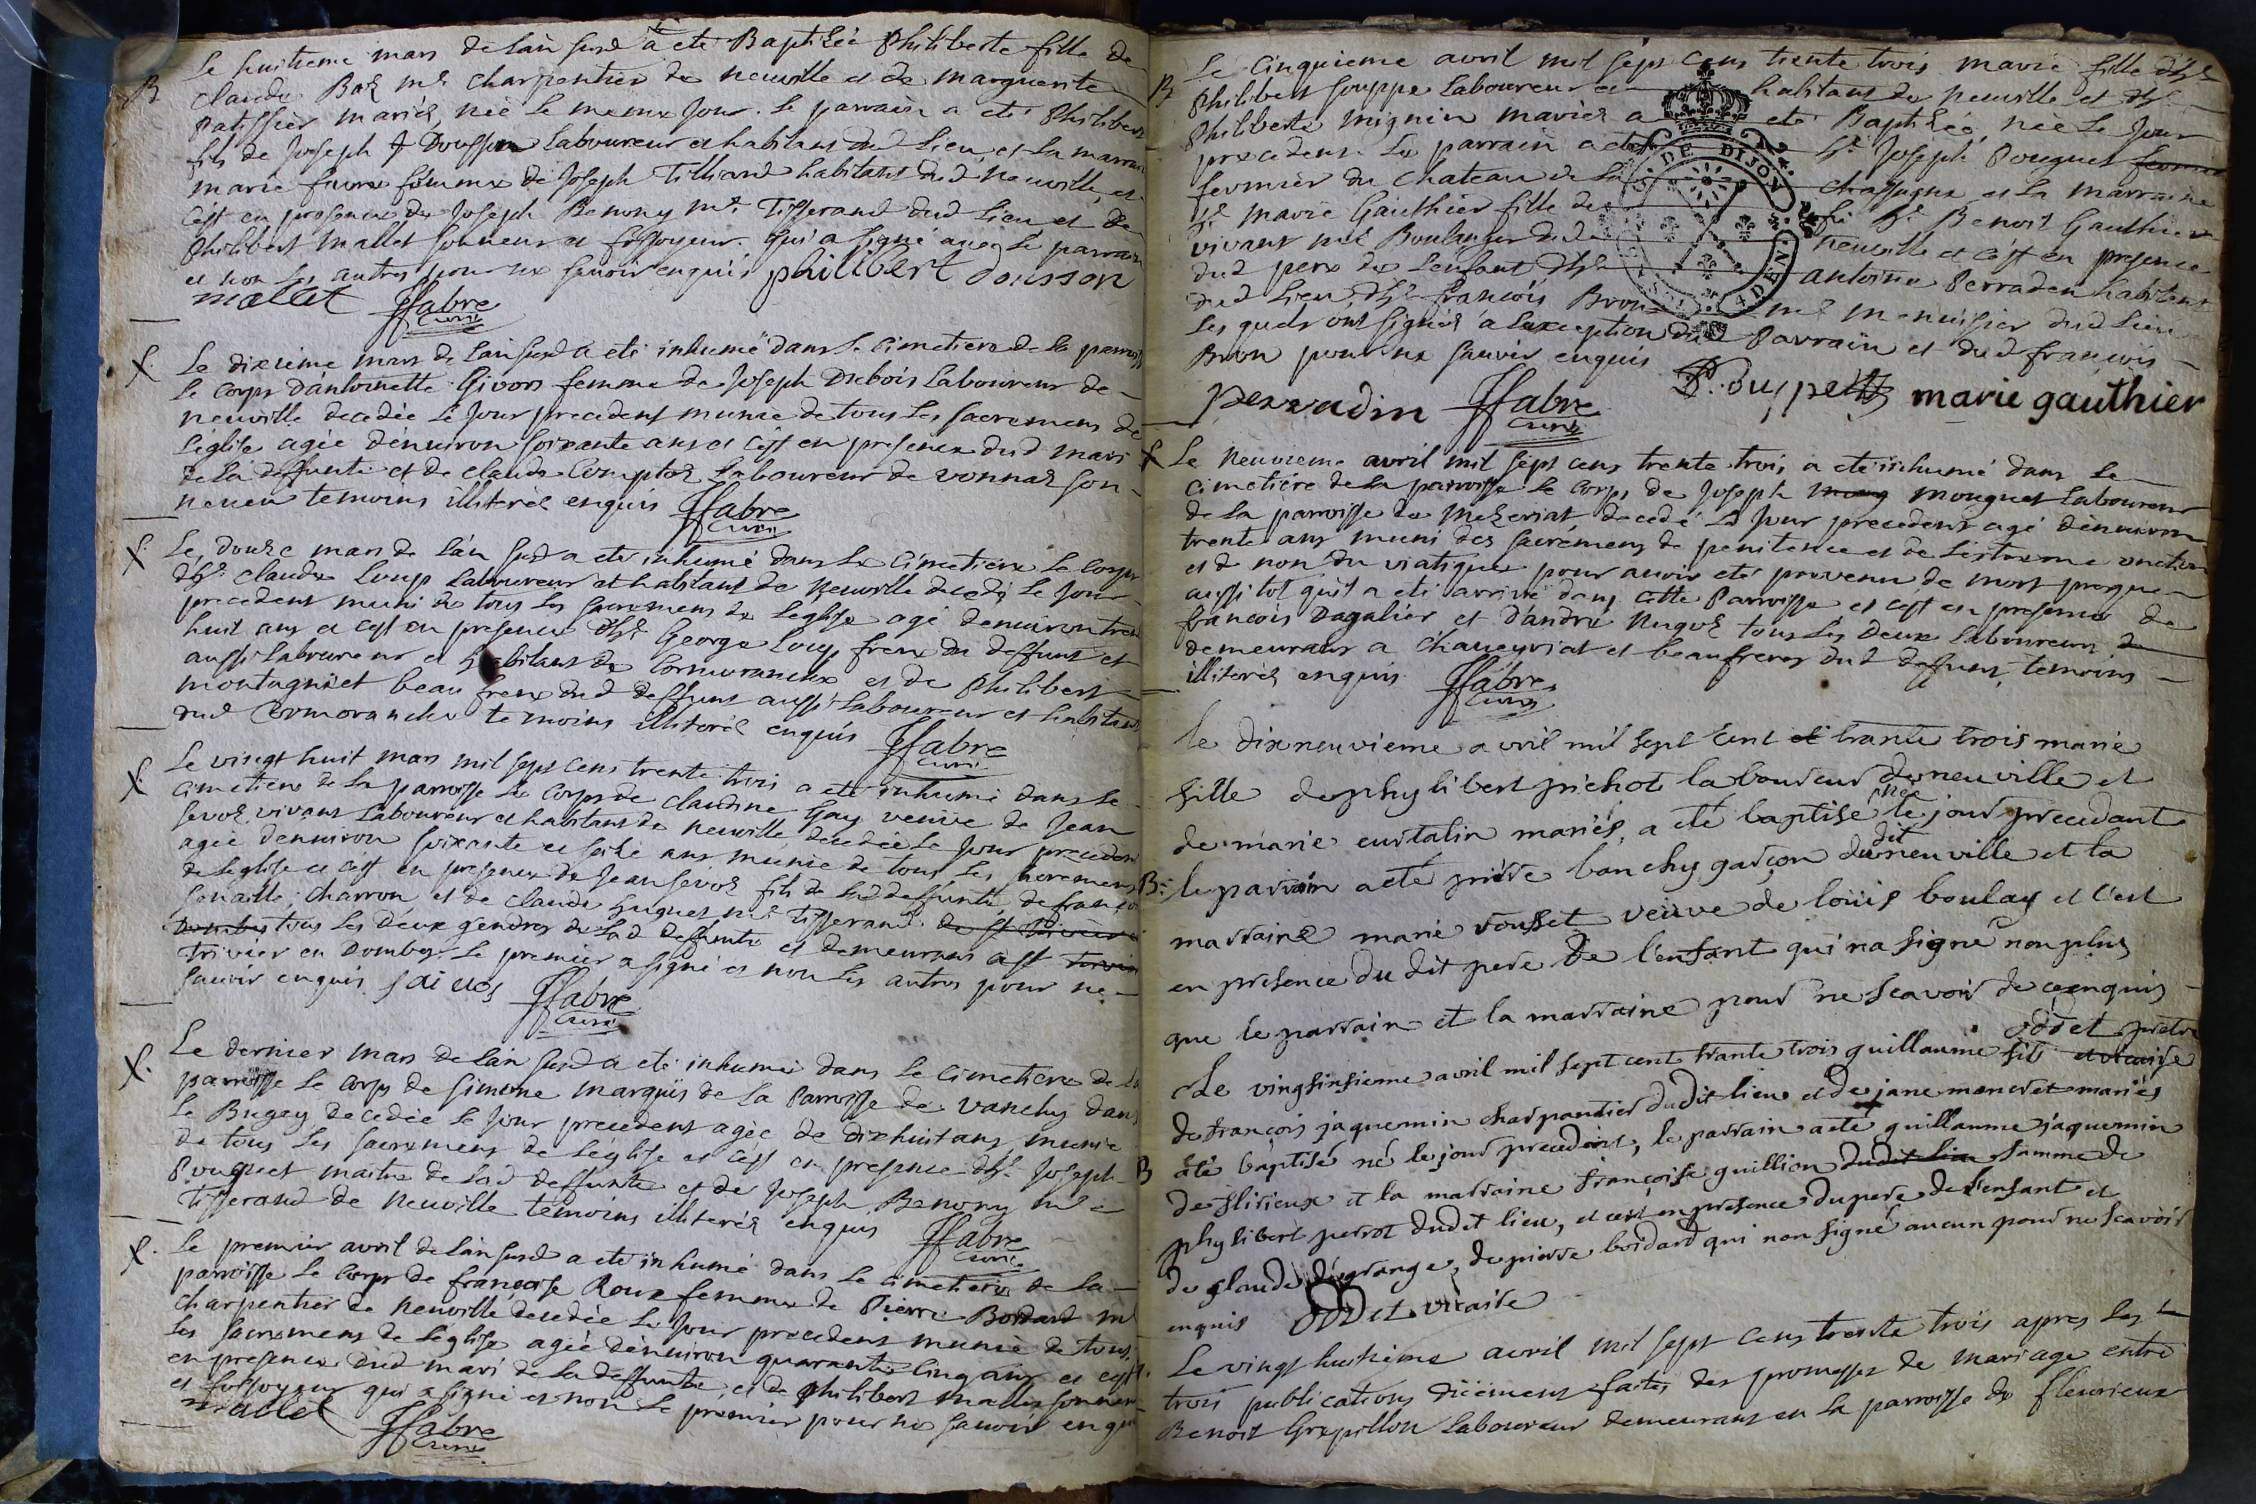 Le huitieme mars de lan susd a ete Baptisée Philiberte fille de
B
claude m.e charpentier de neuville et de marguerite
patissier mariés, née le meme jour. le parrain a eté Philibert
fils de Joseph Dousson laboureur et habitant dud lieu et la marraine
marie femme de Joseph Tilliard habitant dud neuville, et
c'est en presence de Joseph Benony m.e Tisserand dud lieu et de
Philibert mallet sonneur et fossoyeur. qui a signé avec le parrain
et non les autres pour ne savoir enquis philibert dousson
mallet JFabre
Curé
Le dixieme mars de lan susd a eté inhumé dans le cimetiere de la parroisse
X
le corps d'antoinette Givors femme de Joseph Dubois laboureur de
neuville decedée le jour precedent munie de tous les sacremens de
l'eglise agée d'enuiron soixante ans et c'est en presence dud mari
de la deffunte et de claude laboureur de vonnas son
neveu temoins illiterés enquis JFabre
Curé
Le douze mars de l'an susd a eté inhumé dans le cimetiere le corps
X
claude Loup laboureur et habitant de neuville decedé le jour
precedent muni de tous les sacremens de l'eglise agé denuiron trente
huit ans et c'est en presence d'h.e George Loup frere du deffunt et
aussi laboureur et habitant de Cormoranche et de Philibert
montagniet beau frere dud deffunt aussi laboureur et habitant
dud Cormoranche temoins illiterés enquis JFabre
Curé
Le vingt huit mars mil sept cens trente trois a eté inhumé dans le
X
cimetiere de la parroisse le corps de claudine Gay veuve de Jean
vivant laboureur et habitant de neuville decedée le jour precedent
agée denuiron soixante et seize ans munie de tous les sacremens
de l'eglise et c'est en presence de Jean fils de lad deffunte de françois
charron et de claude huguet m.e tisserand
tous les deux gendres de lad deffunte et demeurans a St
Trivier en Dombes. le premier a signé et non les autres pour ne
savoir enquis JFabre
Curé
Le dernier mars de lan susd a eté inhumé dans le cimetiere de la
X.
parroisse le corps de simone marquis de la Parroisse de vanchy dans
le Bugey decedée le jour precedent agée de dixhuit ans munie
de tous les sacremens de l'église et c'est en presence d'h.e Joseph
Pouguet maitre de lad deffunte et de Joseph Benony m.e
tisserand de Neuville témoins illiterés enquis JFabre
Curé
Le premier avril de lan susd a eté inhumé dans le cimetiere de la
X.
parroisse le corps de françoise Roux femme de Pierre Boidard m.e
charpentier de neuville decedée le jour precedent munie de tous
les sacremens de l'eglise agée denuiron quarante cinq ans et c'est
en presence dud mari de la deffunte, et de philibert mallet sonneur
et fossoyeur qui a signé et non le premier pour ne savoir enquis
mallet JFabre
Curé
Le cinquieme avril mil sept cens trente trois marie fille d'h.e
B
Philibert souppe laboureur et habitant de neuville et d'h.e
Philiberte mignin mariés a eté Baptisée, née le jour
precedent. Le parrain a eté S.r Joseph Pouguet
fermier du chateau de la chassagne et la marraine
marie Gauthier fille de feu S.r Benoit Gauthier
vivant m.e Boulanger dud neuville et c'est en presence
dud pere de l'enfant d'h.e antoine Perradin habitant
dud lieu, d'h.e françois Bron m.e menuisier dud lieu
lesquels ont signés a l'exception dud Parrain et dud françois
Bron pour ne savoir enquis
DE DIJON
DEN.
perradin JFabre marie gauthier
Curé
Le neuvieme avril mil sept cens trente trois a eté inhumé dans le
X
cimetiere de la parroisse le corps de Joseph mouguet laboureur
de la parroisse de mezeriat decedé le jour precedent agé dènuiron
trente ans muni des sacremens de penitence et de l'extreme onction
et de non du viatique pour avoir eté prevenu de mort presque
aussi tot quil a eté arrivé dans cette Parroisse et c'est en presence de
françois Dagalier et d'andré tous les deux laboureurs
demeurans a chaveyriat et beaufreres dud deffunt, temoins
illiterés enquis JFabre
Curé
le dixneuvieme avril mil sept cent trante trois marie
fille de phylibert pichot laboureur de neuville et
de marie curtalin mariés, a eté baptisé née le jour precedant
B:
le parrain a eté pierre banchy garçon dudit neuville et la
marraine marie rousset veuve de loüis boulay et c'est
en presence du dit pere de l'enfant qui na signé non plus
que le parrain et la marraine pour ne scavoir de ce enquis
oddet pretre
Le vingsinsieme avril mil sept cent trante trois guillaume fils
de françois jaquemin charpantier dudit lieu et de jane moncret mariés
B
a été baptisé né le jour precedent, le parrain a eté guillaume jaquemin
de flirieux et la marraine françoise guillion famme de
phylibert perrot dudit lieu, et c'est en presence du pere de l'ensant et
de glaude degrange, de pierre boidard qui non signé aucun pour ne scavoir
enquis oddet vicaire
Le vingt huitième avril mil sept cens trente trois apres les
trois publications düement faites des promesses de mariage entre
Benoit Grepillon laboureur demeurant en la parroisse de fleurieux